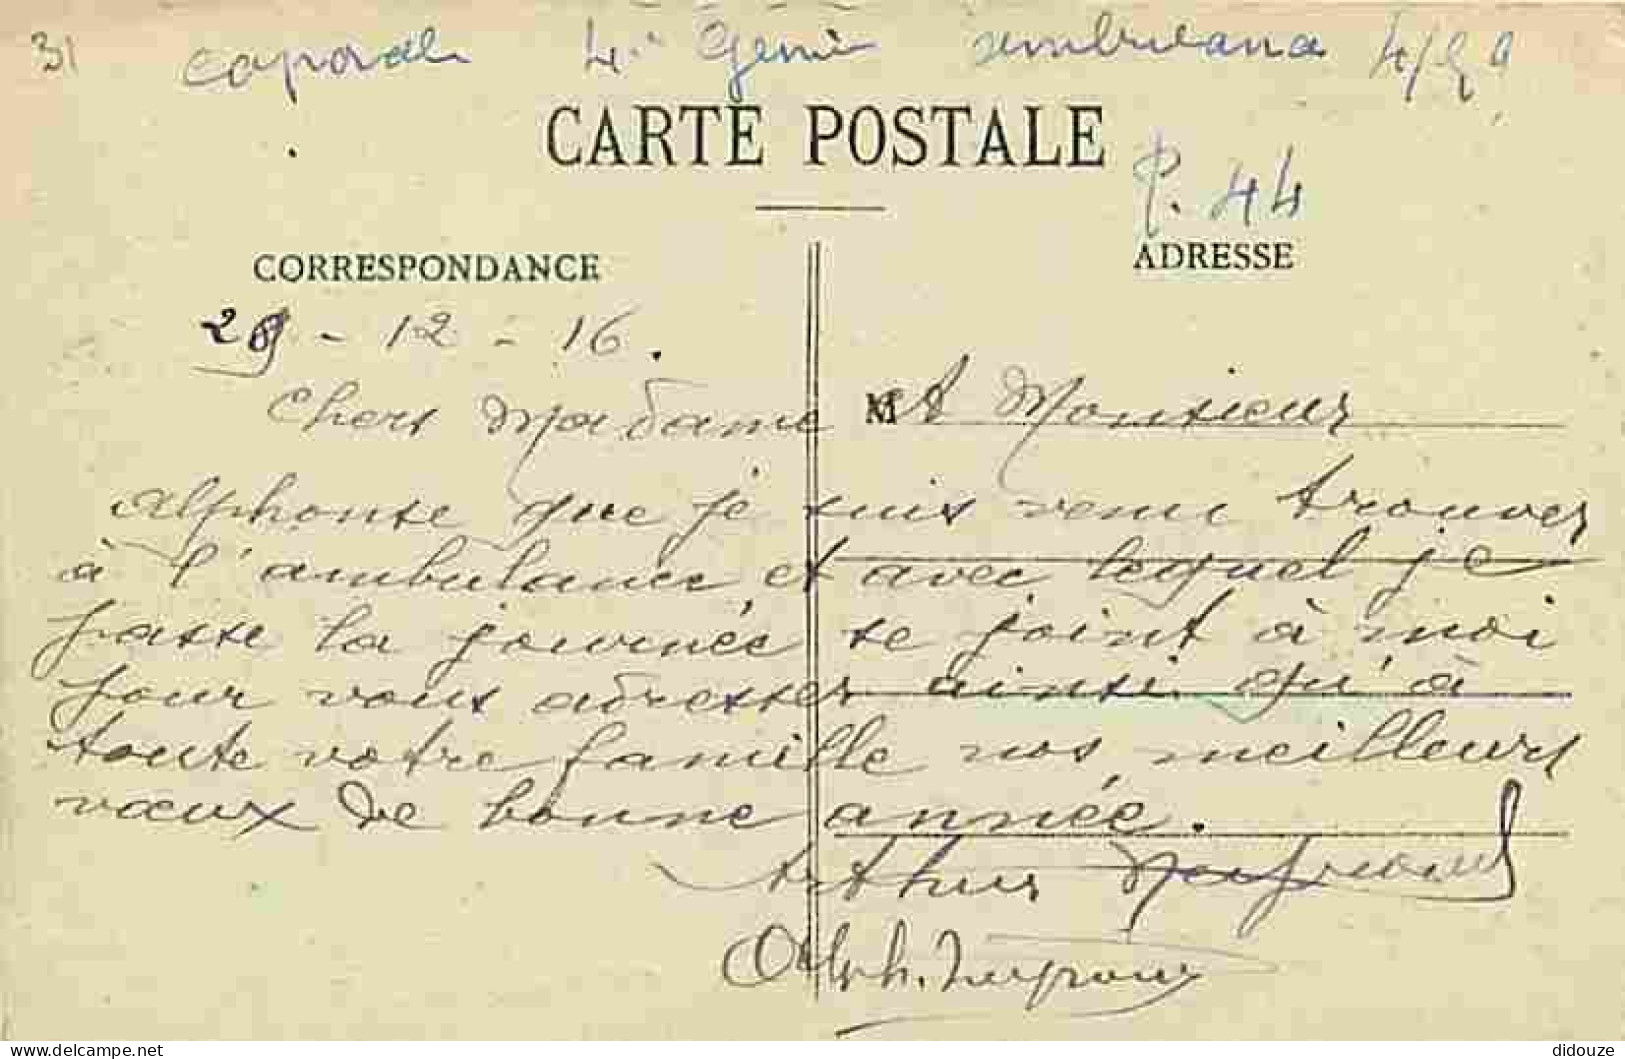 31 caporal 4e Génie
CARTE POSTALE
P. 44
CORRESPONDANCE
ADRESSE
29-12-16.
Chers Madame M et Monsieur
Alphonse que je suis venu trouver
à l'ambulance et avec lequel je
passe la journée se joint à moi
pour vous adresser ainsi qu'à
toute votre famille nos meilleurs
vœux de bonne année.
Arthur
Alph.
delcampe.net
didouze